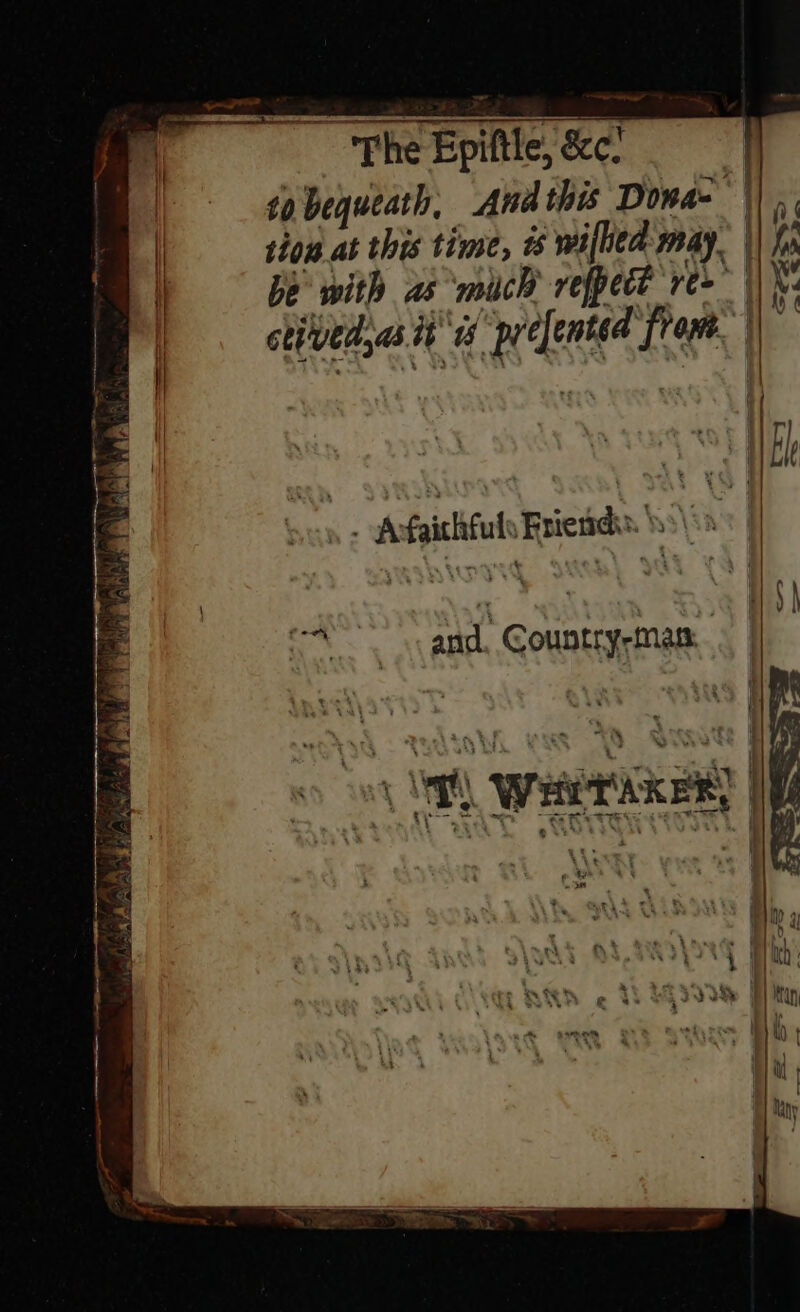 The Epiſtle, &c.
to bequeath. And this Dona-
tion at this time, is wiſhed may
be with as much reſpect re-
ceived, as it is preſented from
A faithful Friend
and Country-man
T. WHITAKER.